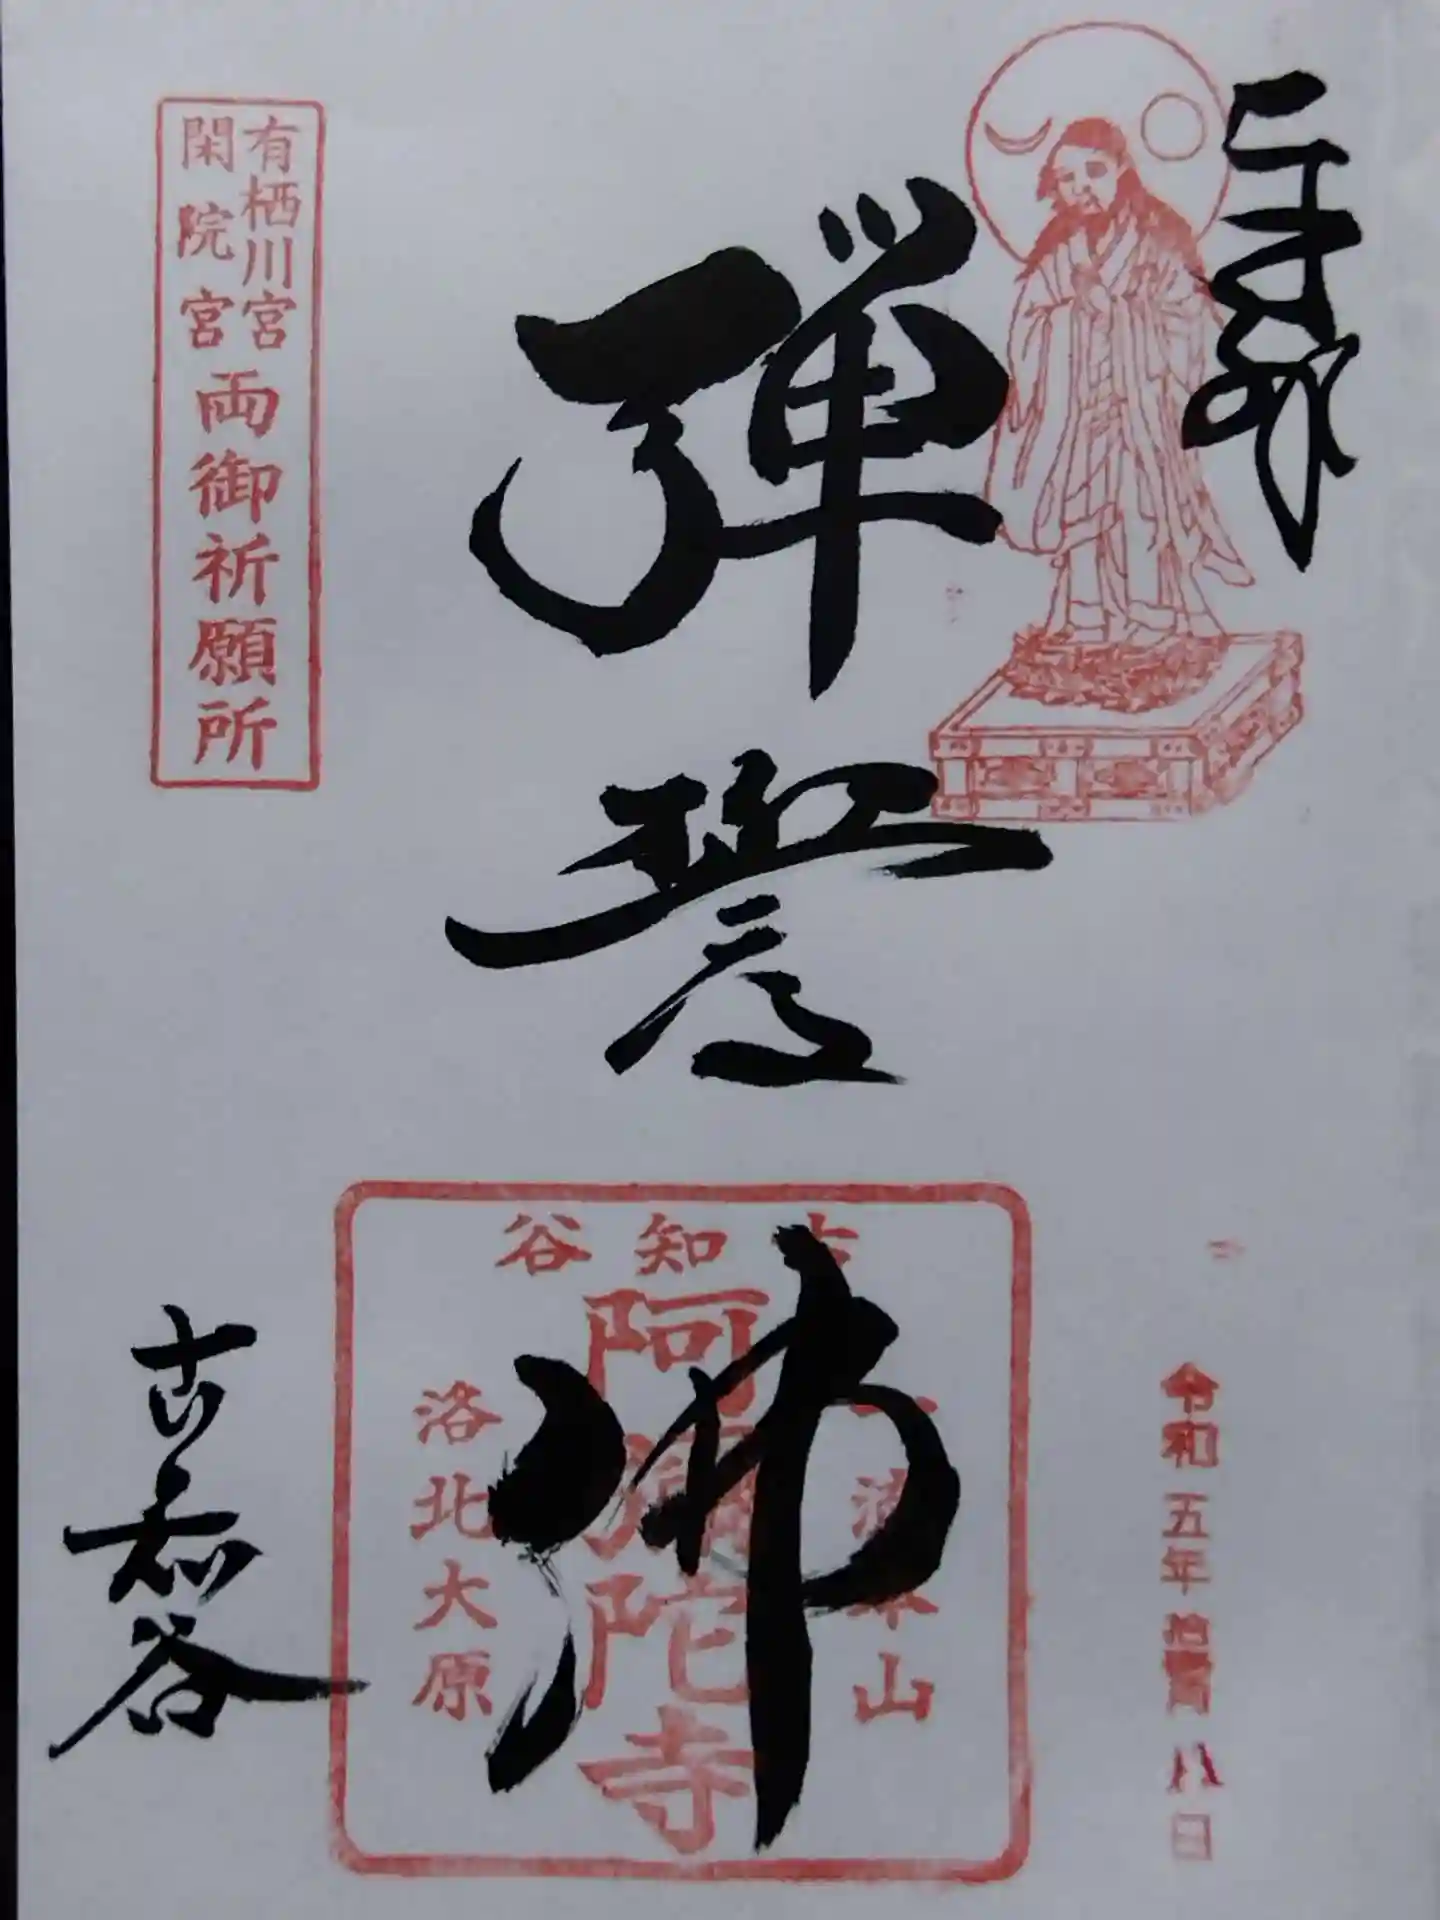 奉拝
弾誓
佛
有栖川宮
閑院宮
両御祈願所
古知谷
一流本山
阿彌陀寺
洛北大原
古知谷
令和五年
八日